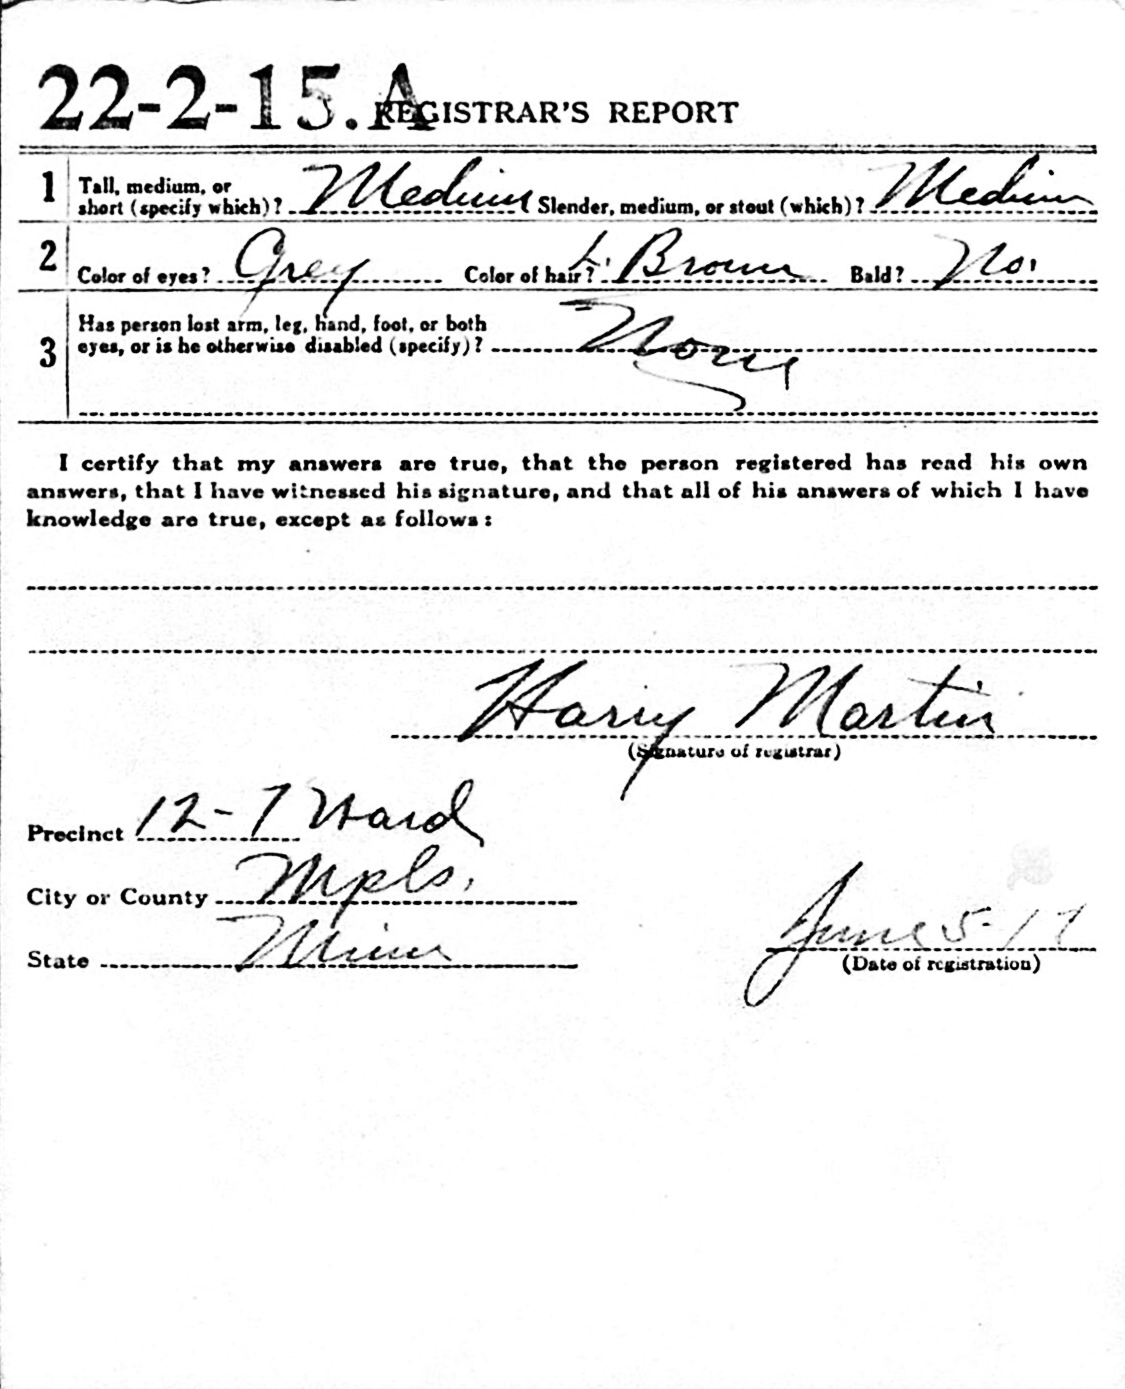 22-2-15.A REGISTRAR'S REPORT
1 Tall, medium, or
short (specify which)? Medium Slender, medium, or stout (which)? Medium
2 Color of eyes? Grey Color of hair? L. Brown Bald? No.
3 Has person lost arm, leg, hand, foot, or both
eyes, or is he otherwise disabled (specify)? None
I certify that my answers are true, that the person registered has read his own
answers, that I have witnessed his signature, and that all of his answers of which I have
knowledge are true, except as follows:
Harry Martin
(Signature of registrar)
Precinct 12-7 Ward
City or County Mpls.
State Minn
June 5-17
(Date of registration)